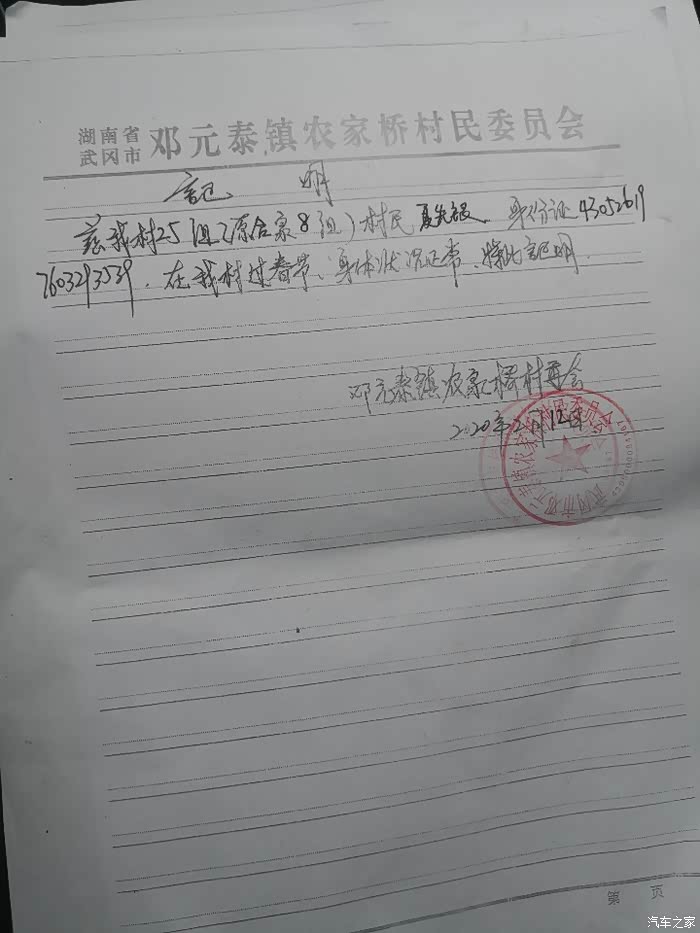 湖南省
武冈市 邓元泰镇农家桥村民委员会
证 明
兹我村25组(原合家8组)村民 身份证43052619
7603293539,在我村过春节、身体状况正常、特此证明.
邓元泰镇农家桥村委会
2020年2月12日
第 页
汽车之家